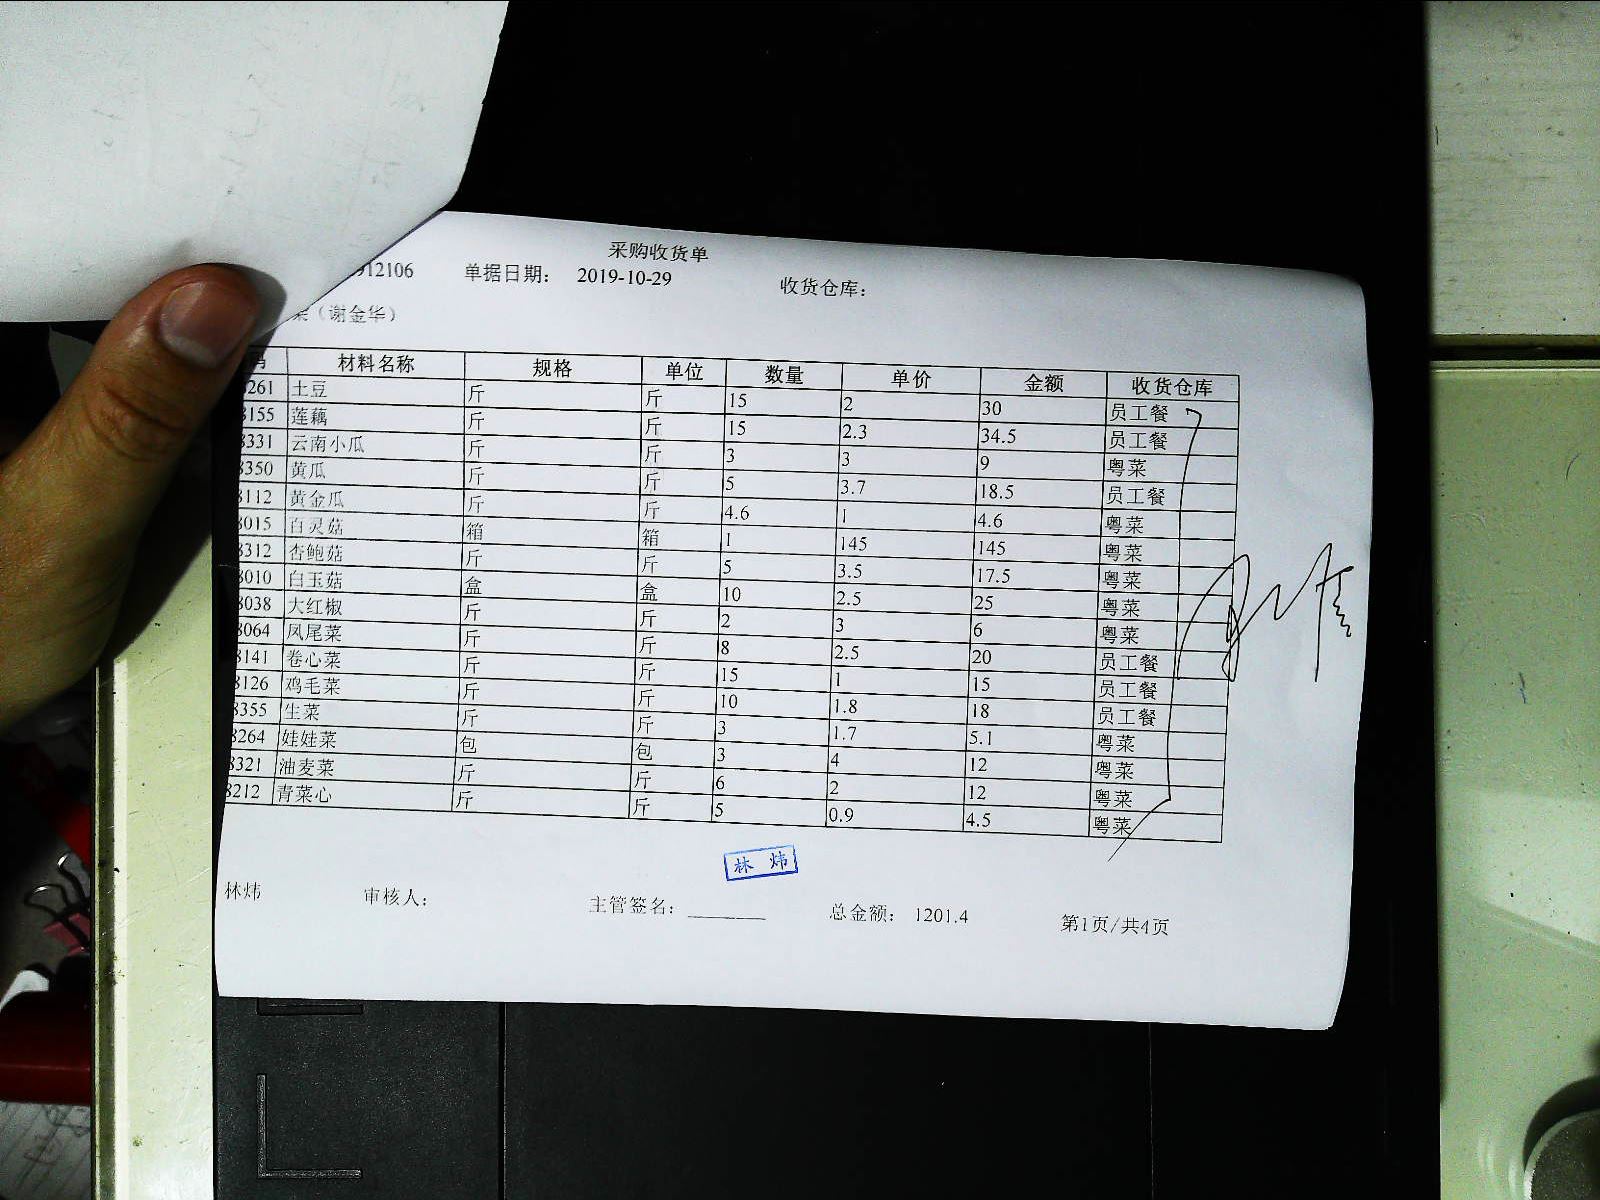 采购收货单
912106 单据日期： 2019-10-29 收货仓库：
（谢金华）
码 材料名称 规格 单位 数量 单价 金额 收货仓库
261 土豆 斤 斤 15 2 30 员工餐
8155 莲藕 斤 斤 15 2.3 34.5 员工餐
8331 云南小瓜 斤 斤 3 3 9 粤菜
8350 黄瓜 斤 斤 5 3.7 18.5 员工餐
8112 黄金瓜 斤 斤 4.6 1 4.6 粤菜
8015 百灵菇 箱 箱 1 145 145 粤菜
8312 杏鲍菇 斤 斤 5 3.5 17.5 粤菜
8010 白玉菇 盒 盒 10 2.5 25 粤菜
8038 大红椒 斤 斤 2 3 6 粤菜
8064 凤尾菜 斤 斤 8 2.5 20 员工餐
8141 卷心菜 斤 斤 15 1 15 员工餐
8126 鸡毛菜 斤 斤 10 1.8 18 员工餐
8355 生菜 斤 斤 3 1.7 5.1 粤菜
8264 娃娃菜 包 包 3 4 12 粤菜
8321 油麦菜 斤 斤 6 2 12 粤菜
8212 青菜心 斤 斤 5 0.9 4.5 粤菜
林 炜
林炜 审核人： 主管签名： 总金额： 1201.4 第1页/共4页